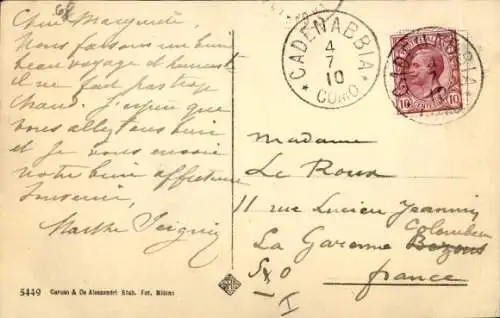 68
Chère Marguerite,
Nous faisons un bien
beau voyage et heureusement
il ne fait pas trop
chaud. J'espère que
vous allez tous bien
et je vous envoie
votre bien affectueux
souvenir,
Marthe
CADENABBIA
4
7
10
* COMO *
10 10
Madame
Le Roux
11 rue Lucien Jeannin
La Garenne Bezons
Colombes
S & O
France
5449 Caruso & Co Alessandri Stab. Fot. Milano